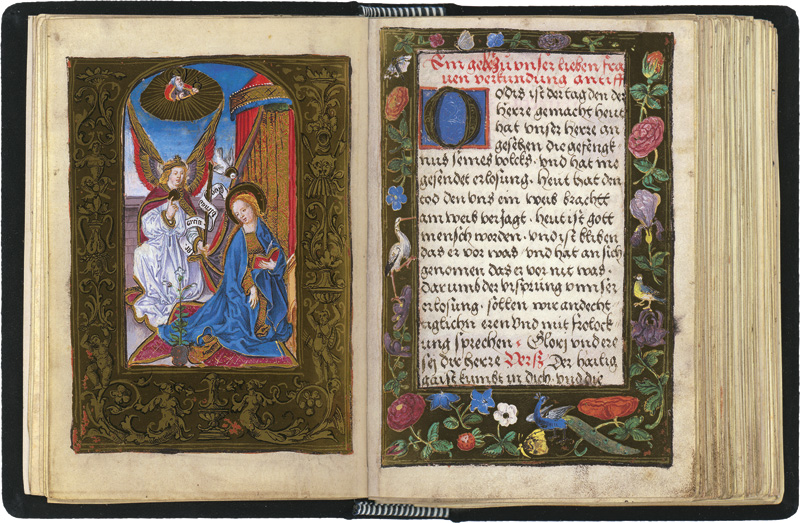 Ein gebet Zu vnser lieben fra
uen verkundung antiff
Odis ist der tag den der
Herre gemacht heut
hat vnser Herre an
gesehen die gefengk
nus seines volcks . vnd hat ine
gesendet erlosung . heut hat den
tod den vns ein weib bracht
am weib veriagt . heut ist gott
mensch worden . vnd ist bliben
das er vor was . vnd hat an sich
genomen das er vor nit was .
darumb der vrsprung vnnser
erlosung . sollen wir andecht
tiglichn eren vnd mit frolock
ung sprechen . Glori vnd ere
sei dir herre Verss Der hailig
gaist kumbt in dich . vnd die